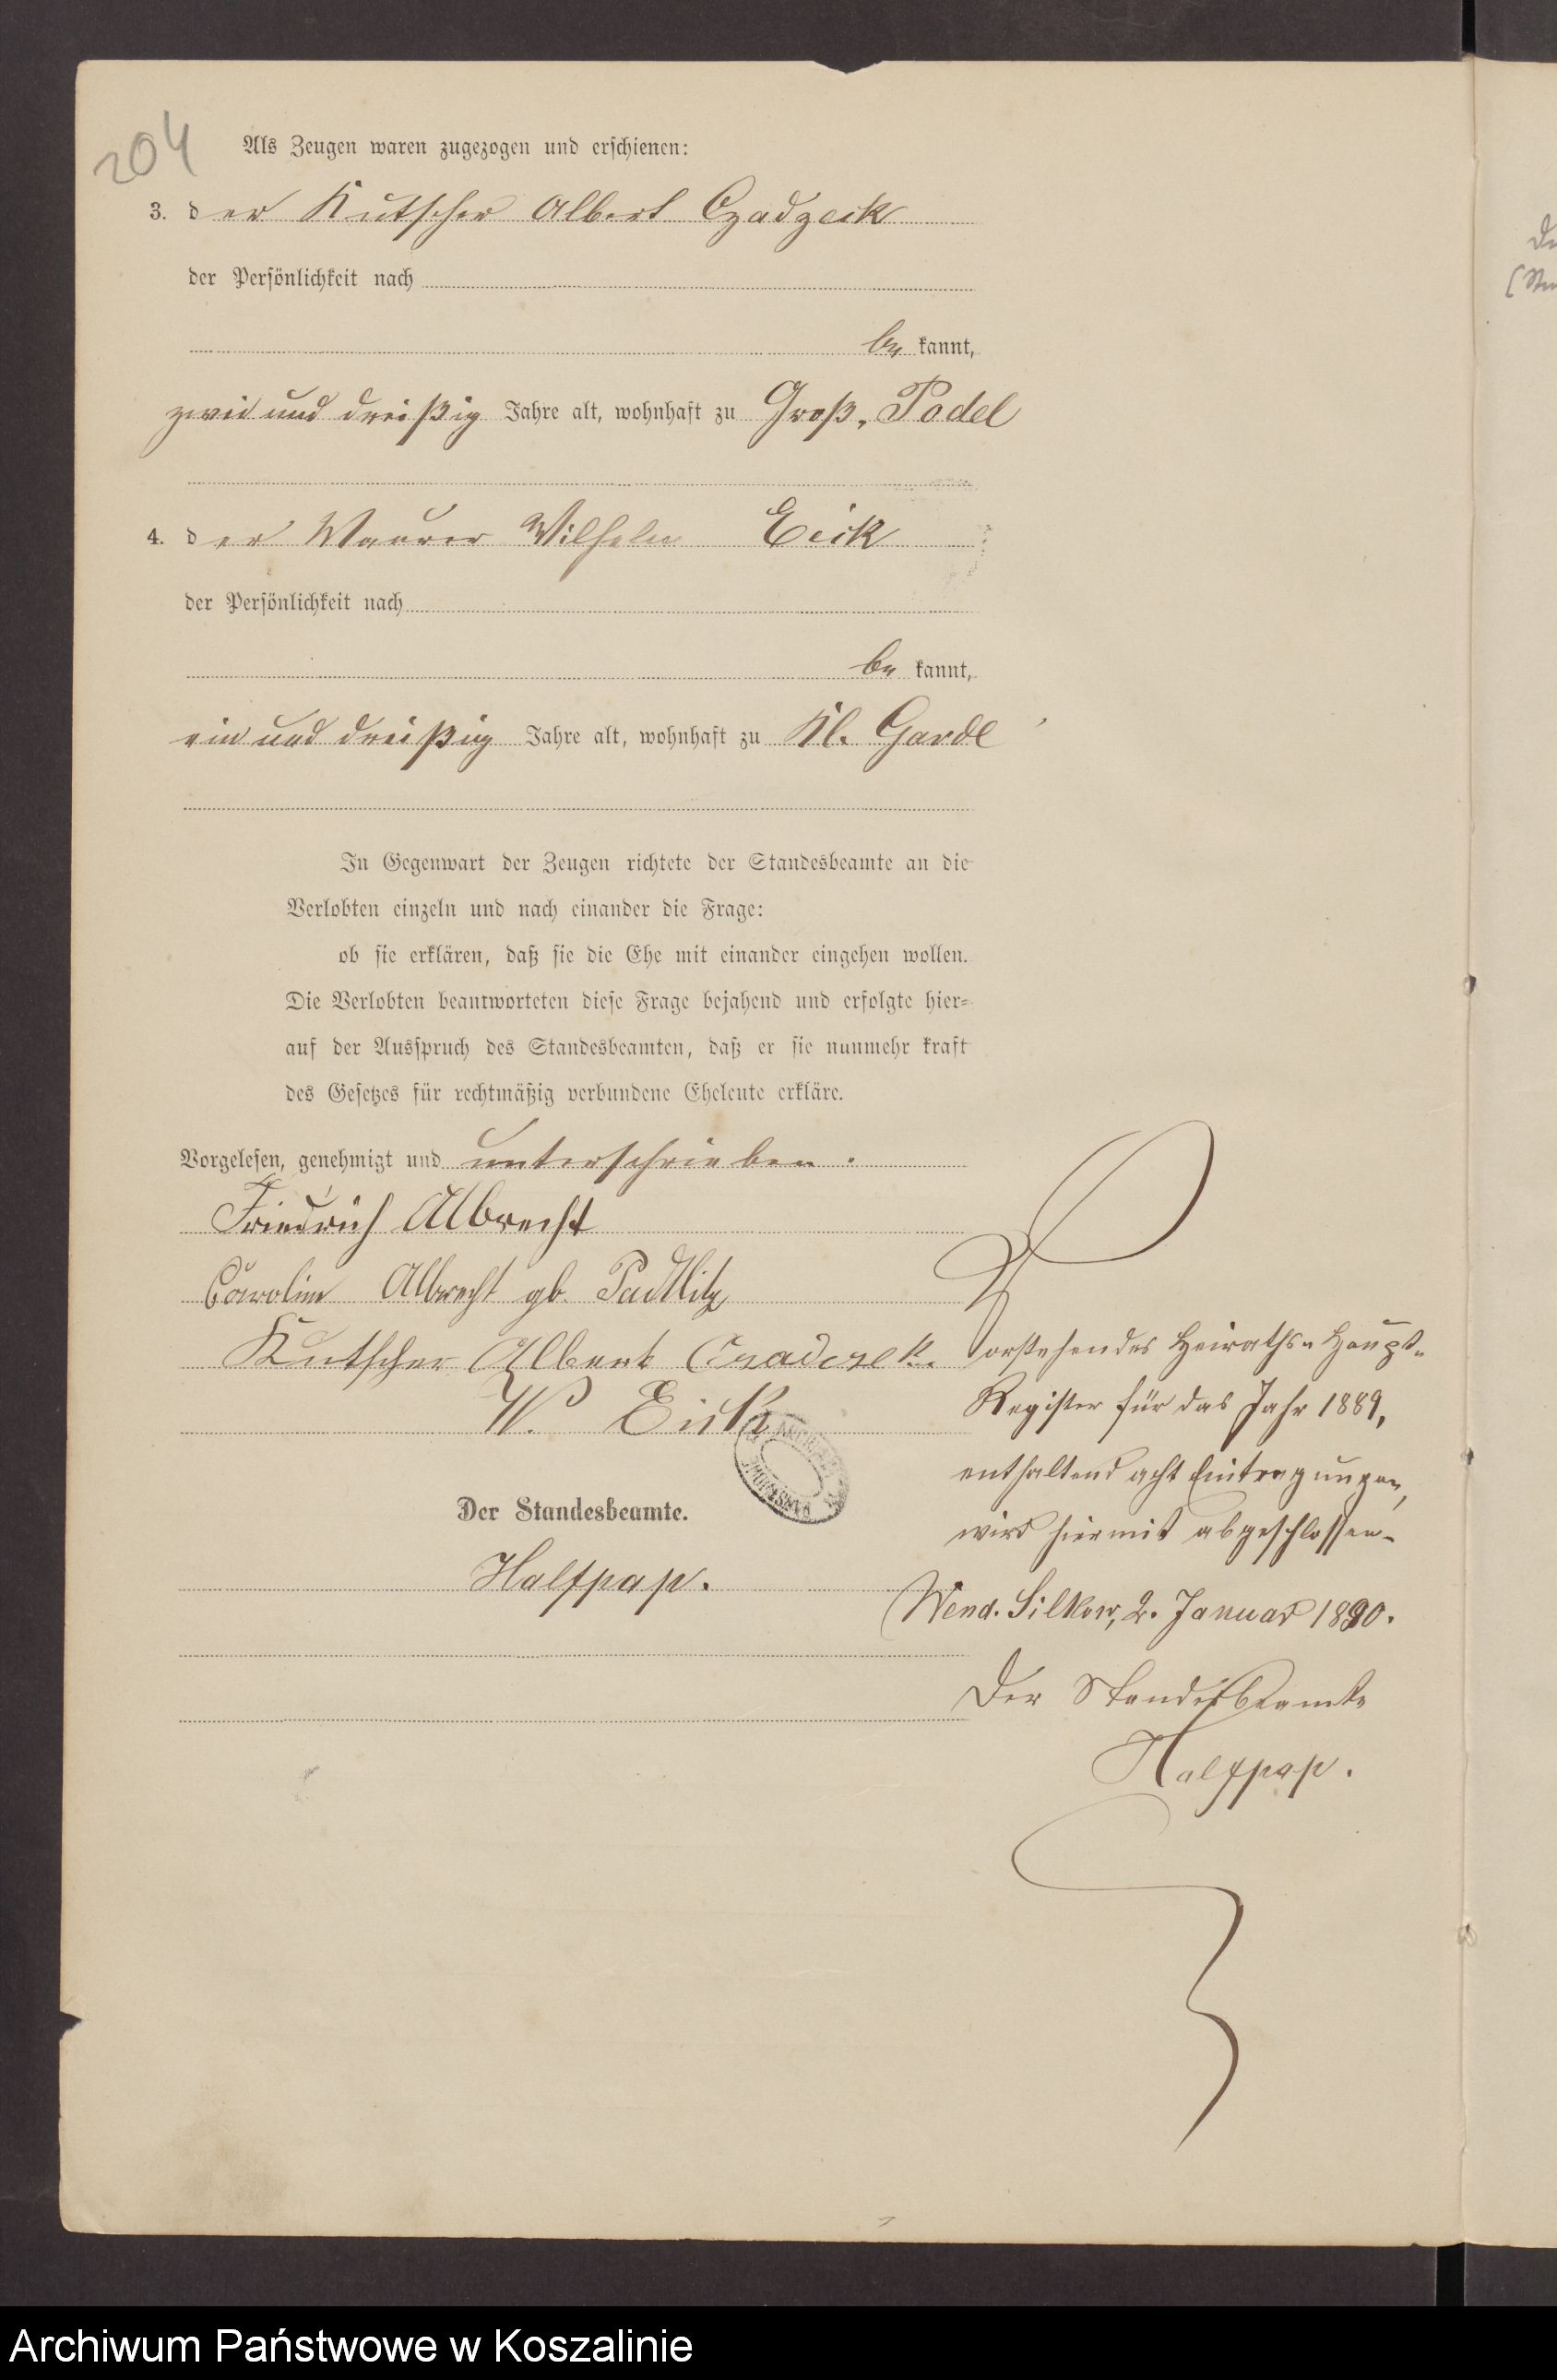 204
Als Zeugen waren zugezogen und erschienen:
3. der Kutscher Albert Czadzeck
der Persönlichkeit nach
be kannt,
zwei und dreißig Jahre alt, wohnhaft zu Groß-Podel
4. der Maurer Wilhelm Eick
der Persönlichkeit nach
be kannt,
ein und dreißig Jahre alt, wohnhaft zu Kl. Garde
In Gegenwart der Zeugen richtete der Standesbeamte an die
Verlobten einzeln und nach einander die Frage:
ob sie erklären, daß sie die Ehe mit einander eingehen wollen.
Die Verlobten beantworteten diese Frage bejahend und erfolgte hier-
auf der Ausspruch des Standesbeamten, daß er sie nunmehr kraft
des Gesetzes für rechtmäßig verbundene Eheleute erkläre.
Vorgelesen, genehmigt und unterschrieben.
Friedrich Albrecht
Carolin Albrecht gb.
Kutscher Albert Czadczek.
W. Eick
Der Standesbeamte.
Halfpap.
Vorstehendes Heiraths-Haupt-
Register für das Jahr 1889,
enthaltend acht Eintragungen,
wird hiermit abgeschlossen.
Wend. Silkow, 2. Januar 1890.
Der Standesbeamte
Halfpap.
Archiwum Państwowe w Koszalinie